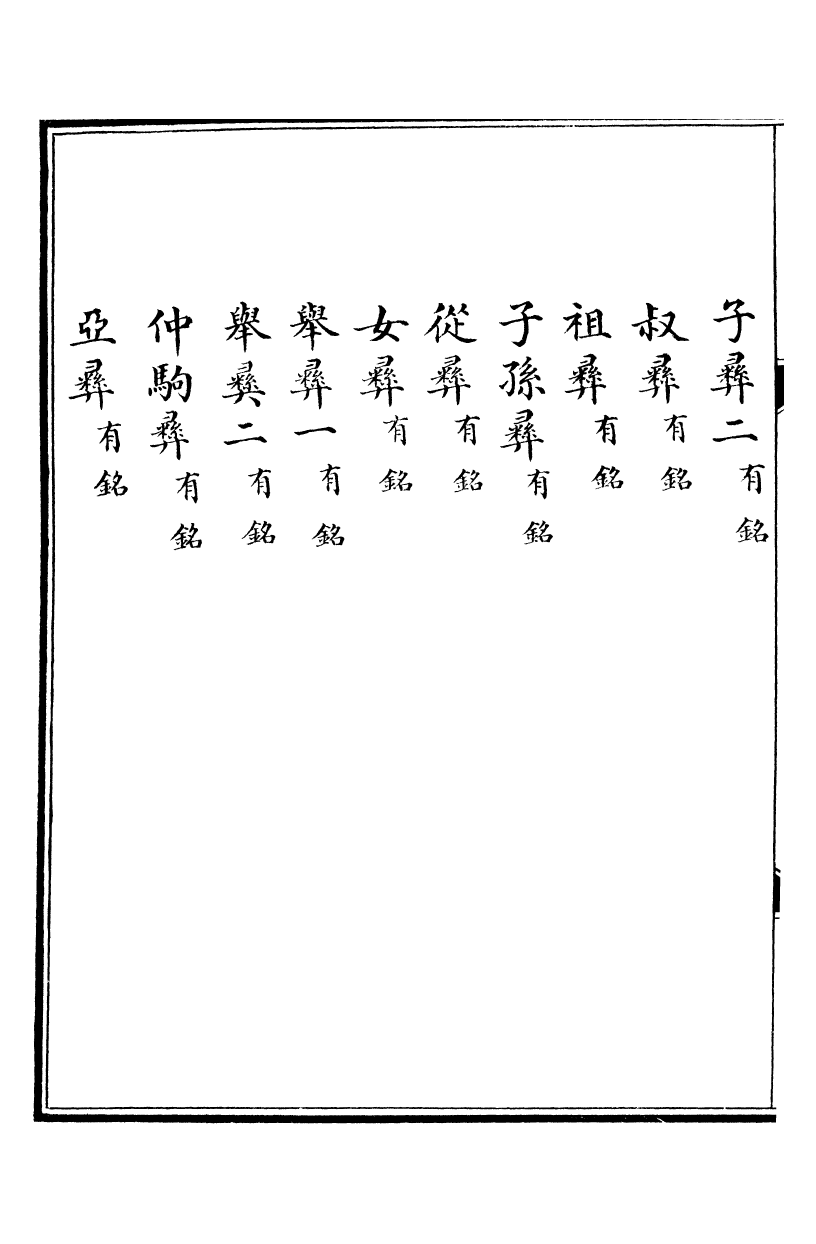 子彝二有銘
叔彝有銘
祖彝有銘
子孫彝有銘
從彝有銘
女彝有銘
舉彝一有銘
舉彝二有銘
仲駒彝有銘
亞彝有銘